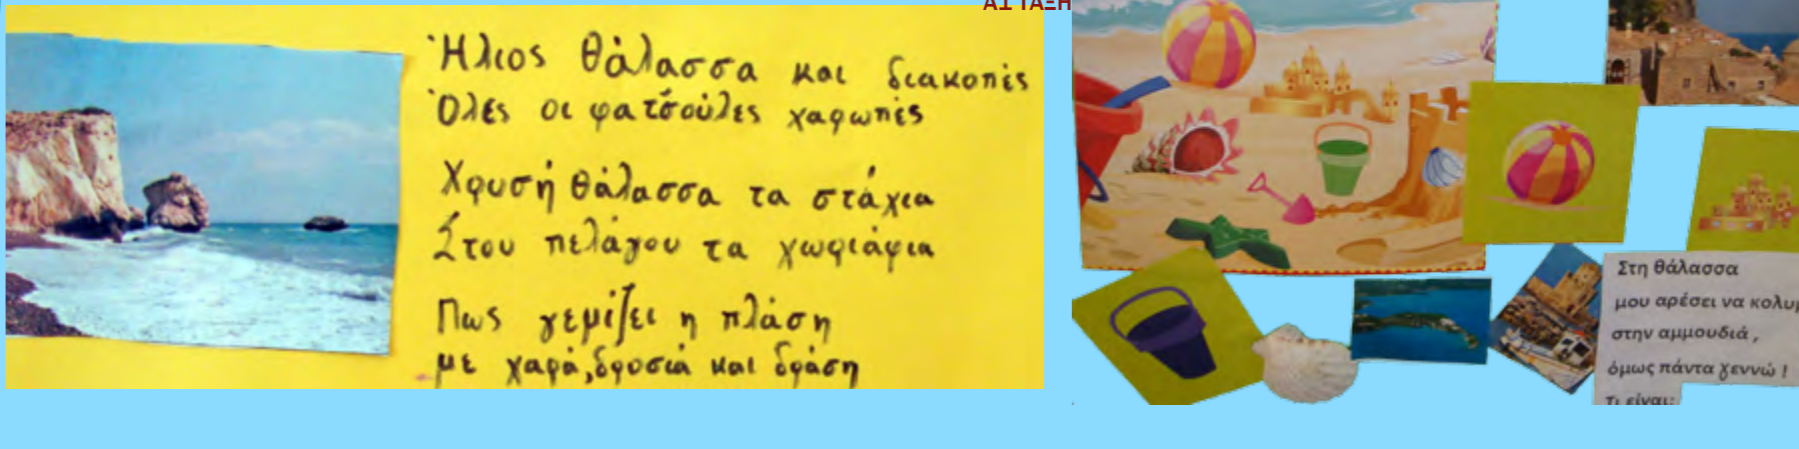 Ήλιος θάλασσα και διακοπές
Όλες οι φατσούλες χαρωπές
Χρυσή θάλασσα τα στάχια
Στου πελάγου τα χωράφια
Πως γεμίζει η πλάση
με χαρά, δροσιά και δράση
Στη θάλασσα
μου αρέσει να
στην αμμουδιά,
όμως πάντα γεννώ!
Τι είναι;